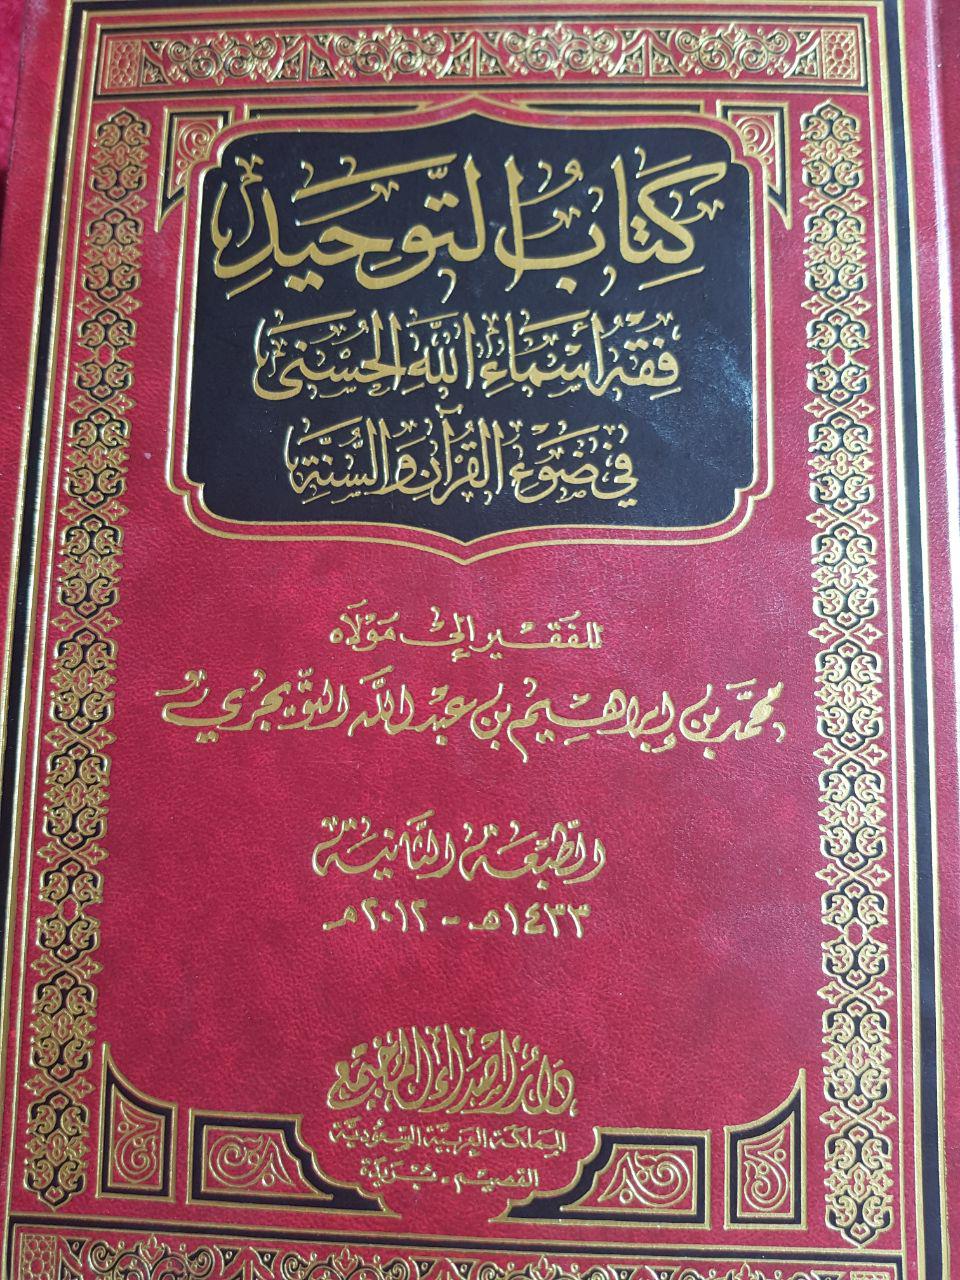 كِتَابُ التَّوحِيدِ
فِقْهُ أَسْمَاءِ اللَّهِ الحُسْنَى
فِي ضَوْءِ القُرْآنِ وَالسُّنَّةِ
للفَقِيرِ إِلَى مَوْلَاه
محمَّد بن إبراهِيم بن عبد اللَّه التّويجري
الطَّبْعَة الثَّانِيَة
١٤٣٣هـ - ٢٠١٢م
دَار أَصْدَاء المجْتَمع
المملكة العربية السعودية
القصيم - بريدة